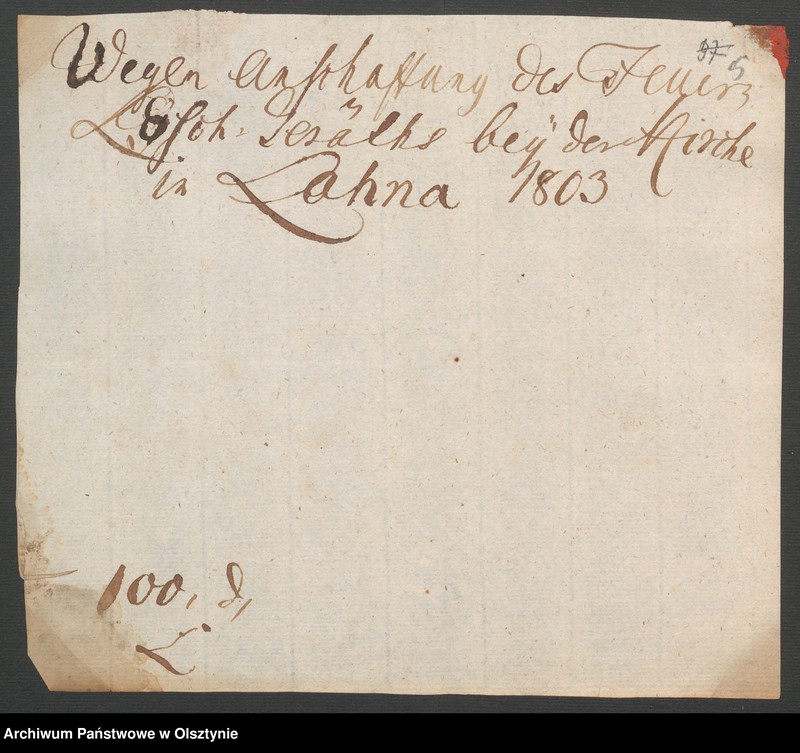 Wegen Anschaffung des Feuer=
Lösch-Geräths bey der Kirche
in Lahna 1803
37 5
100, d,
L
Archiwum Państwowe w Olsztynie